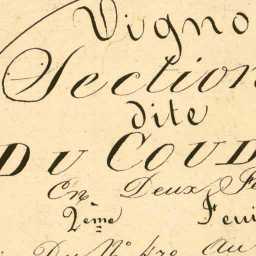 Vigno
Section
dite
DU COUD
En Deux Fe
2eme Feui
Du N° 470 au